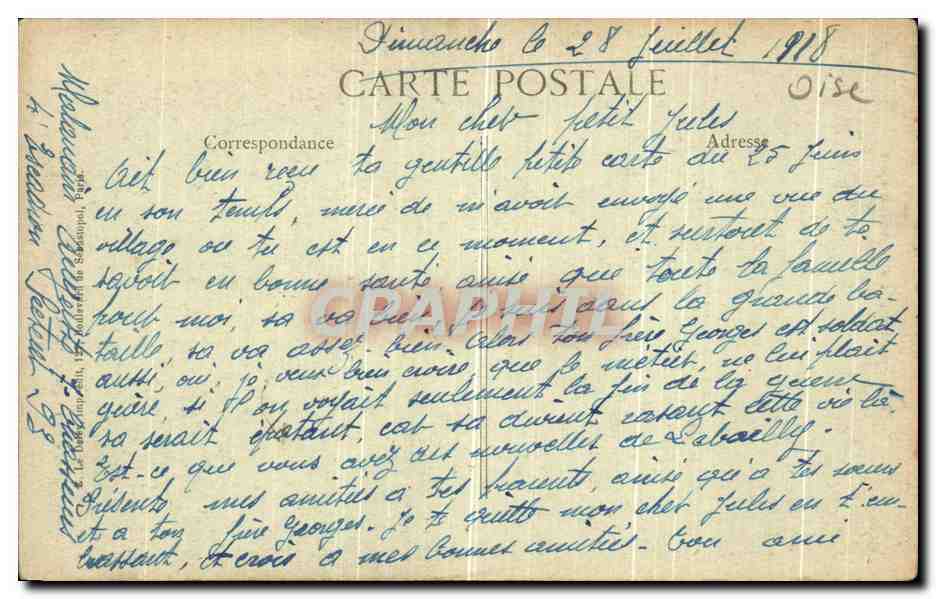 Dimanche le 28 Juillet 1918
CARTE POSTALE
Oise
Mon cher petit Jules
Correspondance
Adresse
Ait bien reçu ta gentille petite carte du 25 Juin
en son temps, merci de m'avoit envoyé une vue du
village ou tu est en ce moment, et surtout de te
savoit en bonne santé ainsi que toute la famille
pour moi, sa va bien, je suis dans la grande ba-
taille, sa va assez bien. Alors ton frère Georges est soldat
aussi, oui, je veux bien croire que le métier, ne lui plait
guère, si l'on voyait seulement la fin de la guerre
sa serait épatant, car sa devient rasant cette vie là.
Est-ce que vous avez des nouvelles de Labailly.
Présente mes amitiés a tes parents, ainsi qu'a tes soeurs
et a ton frère Georges. Je te quitte mon cher Jules en t'em-
brassant, et crois a mes bonnes amitiés. Ton ami
4e Escadron Secteur 98
imp.-édit., 127, Boulevard de Sébastopol, Paris.
CPAPHIL